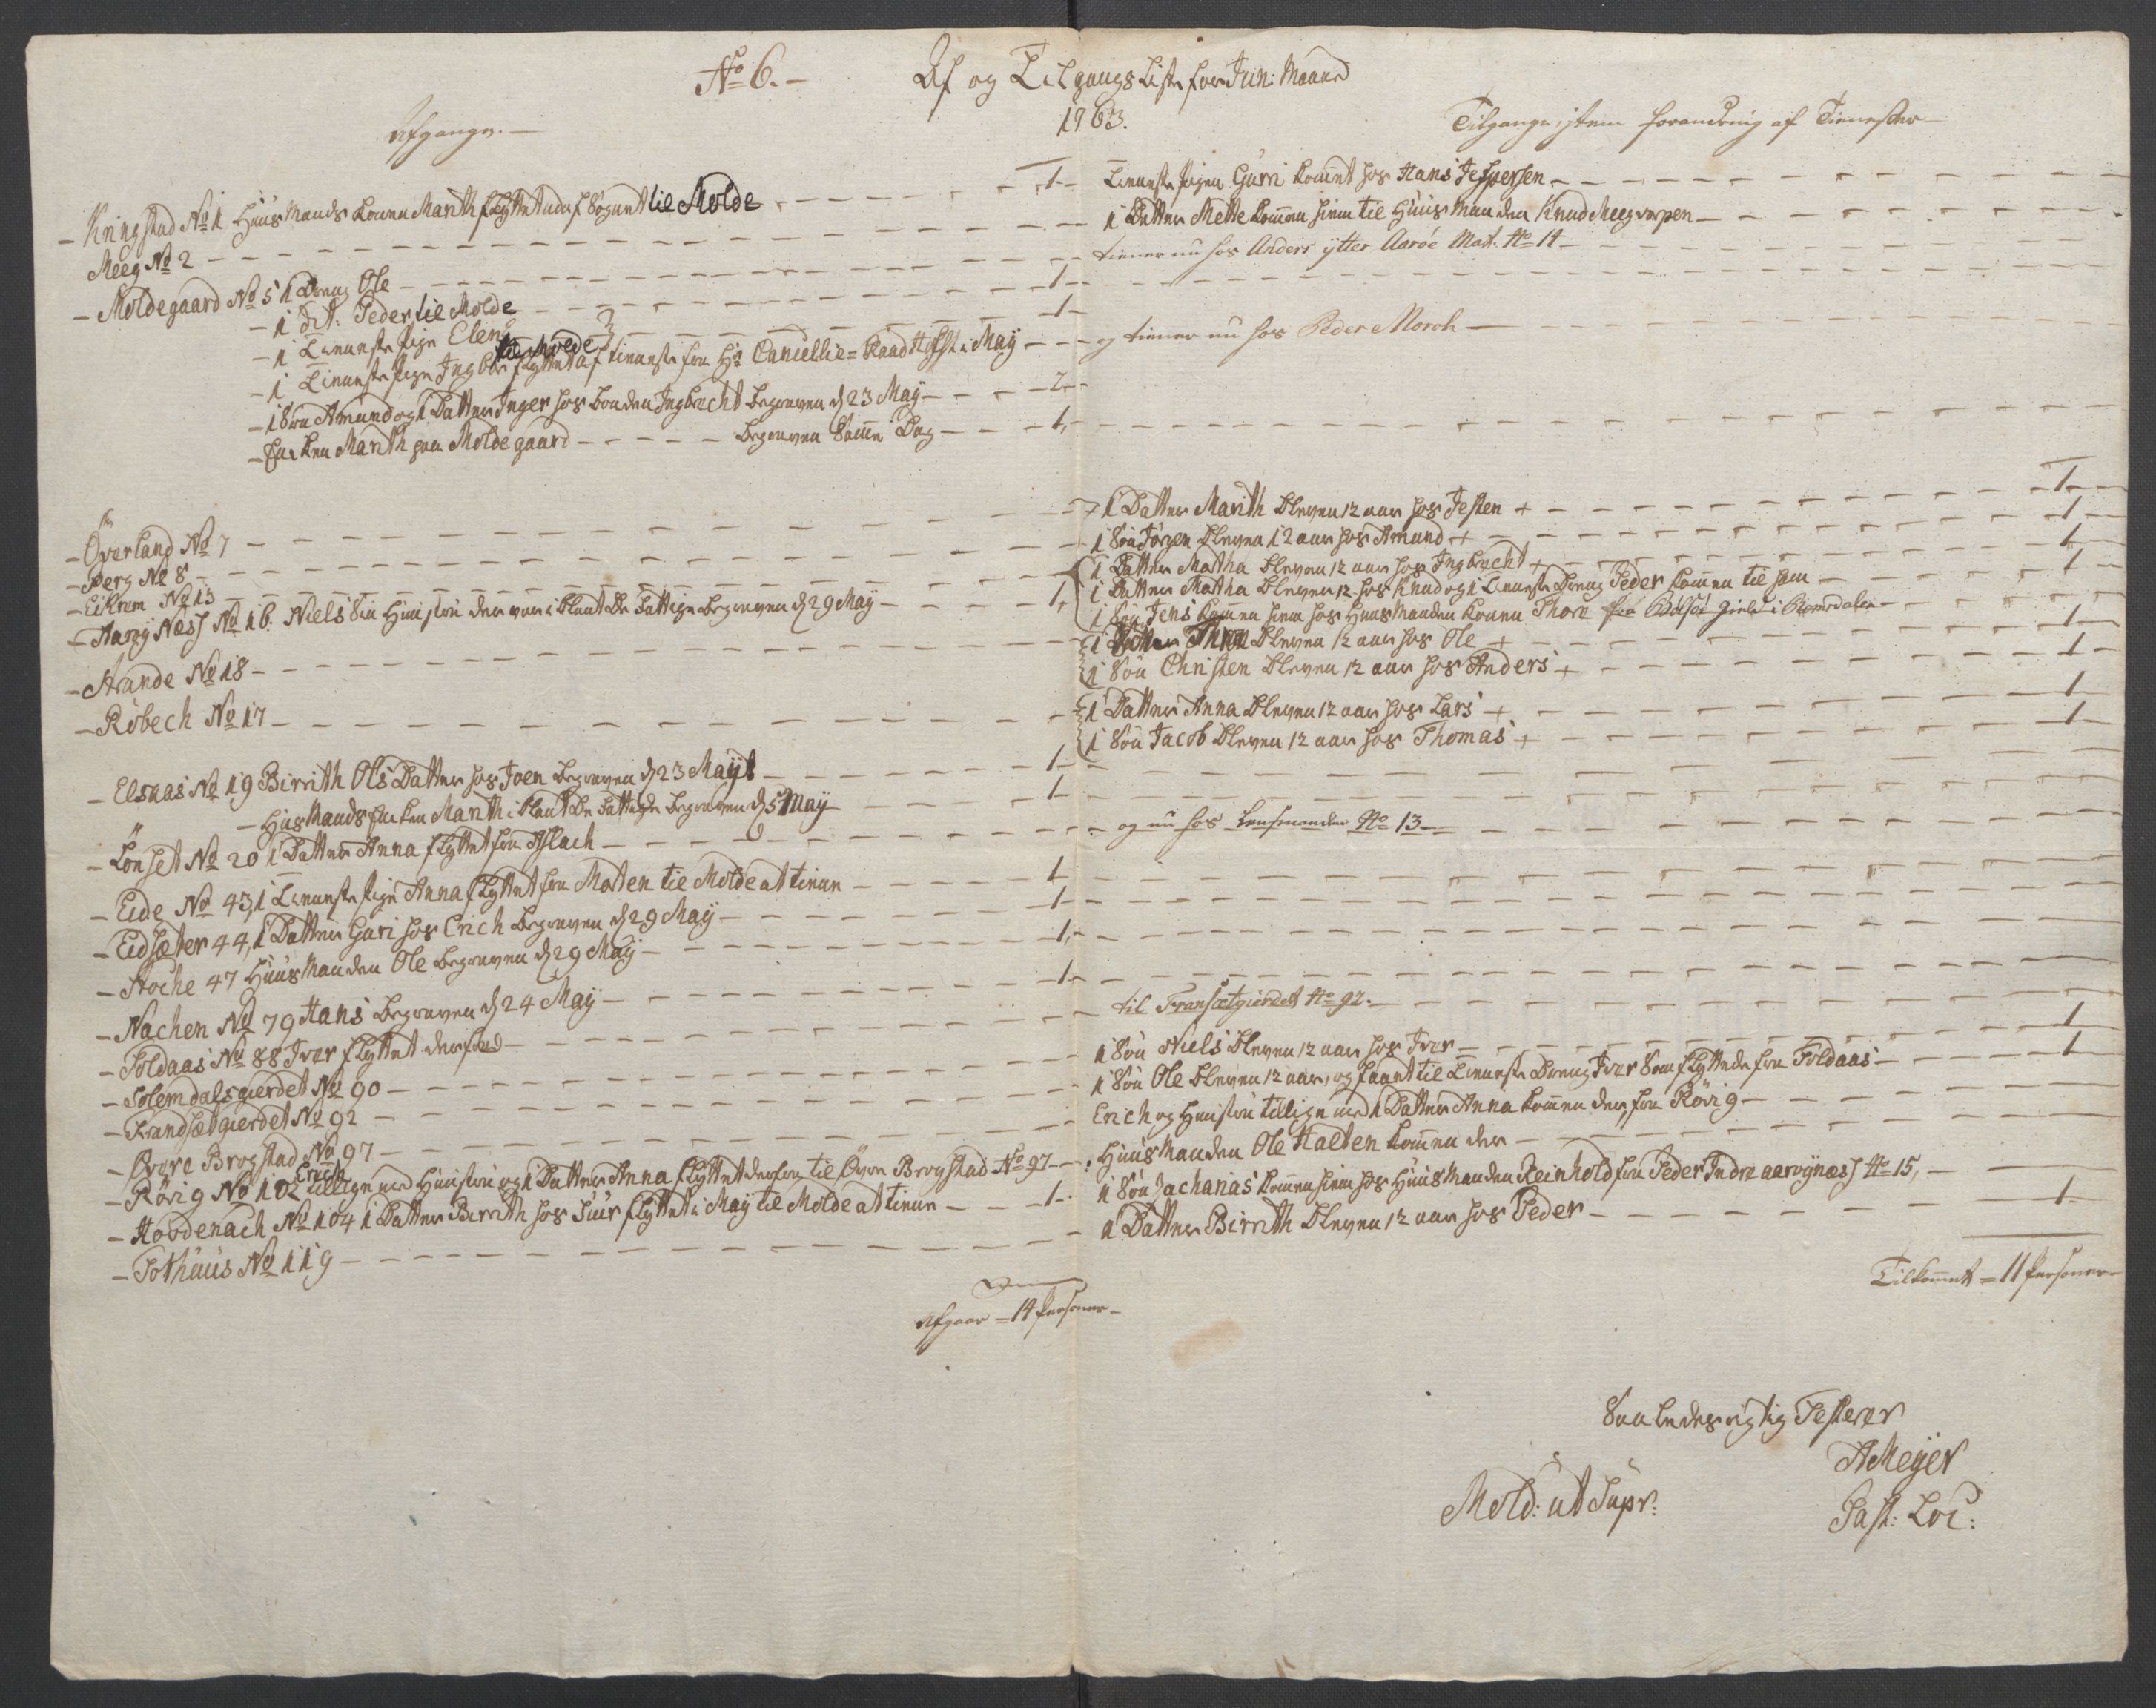 No 6.
Af og Tilgangs Liste for Juni: Maaned
1763.
Afgangen.
Kringstad No 1 Huusmands Konen Marith flyttet udaf Sognet til Molde 1
Meeg No 2
Moldegaard No 5 1 Dreng Ole
1 dit: Peder til Molde 1
1 Tieneste Pige Elen 1
1 Tieneste Pige Ingbor flyttet af tieneste fra Hr Cancellie-Raad i May
1 Søn Amund og 1 Datter Inger hos bonden Ingbrecht begraven d 23 May 2
Enken Marith paa Moldegaard begraven Samme Dag 1
Överland No 7
Berg No 8
Eikrem No 13
Aaröy Næss No 16. Niels Sin Huustru der var i blant de Fattige begraven d 29 May 1
Strande No 18
Röbech No 17
Elsaas No 19 Birrith Ols Datter hos Joen begraven d 23 May 1
Husmands Enken Marith i blant de Fattige begraven d 5 May 1
Lönset No 20 1 Datter Anna flyttet fra Aslach
Eide No 43, 1 Tieneste Pige Anna flyttet fra Maten til Molde at tiene 1
Eidsæter 44, 1 Datter Guri hos Erich begraven d 29 May 1
Stoche 47 Huusmanden Ole begraven d 29 May 1
Nachen No 79 Hans begraven d 24 May 1
Foldaas No 88 Iver flyttet derfra
Solemdalsgierdet No 90
Frandsetgierdet No 92
Øvre Brogstad No 97
Rövig No 102 Erich tillige med Huustru og 1 Datter Anna flyttet derfra til Övre Brogstad No 97
Hordenach No 104 1 Datter Birrith hos Siur flyttet i May til Molde at tiene 1
Pothuus No 119
Afgaar = 14 Personer
Tilgangen, item forandring af Tienester
Tieneste Pigen Guri kommet hos Hans Jespersen 1
1 Datter Mette kommen hiem til Huusmanden Knud Meegvorpen
tiener nu hos Anders ytter Aaröe Mat. No 14
og tiener nu hos Peder Morch
1 Datter Marith bleven 12 aar hos Jesten + 1
1 Søn Jörgen bleven 12 aar hos Amund + 1
1 Datter Matha bleven 12 aar hos Ingbrecht + 1
1 Datter Matha bleven 12 hos Knud og 1 Tieneste Dreng Peder kommen til ham 1
1 Søn Jens kommen hiem hos Huusmanden Konen Thore fra Bolsöe gield i Romsdalen
1 Datter bleven 12 aar hos Ole + 1
1 Søn Christen bleven 12 aar hos Anders + 1
1 Datter Anna bleven 12 aar hos Lars + 1
1 Søn Jacob bleven 12 aar hos Thomas + 1
og nu hos Lensmanden No 13
til Fransætgierdet No 92.
1 Søn Niels bleven 12 aar hos Iver 1
1 Søn Ole bleven 12 aar, og faaet til Tieneste Dreng Iver Som flyttede fra Foldaas 1
Erich og Huustru tillige med 1 Datter Anna kommen der, fra Rövig
Huusmanden Ole Halten kommen der
1 Søn Zacharias kommen hiem hos Huusmanden Reinhold fra Peder Indre aaröynæss No 15,
1 Datter Birrith bleven 12 aar hos Peder 1
Tilkommet = 11 Personer
Saaledes rigtig Testerer
AMeyer
Mold: ut Supr:
Past: Loc: